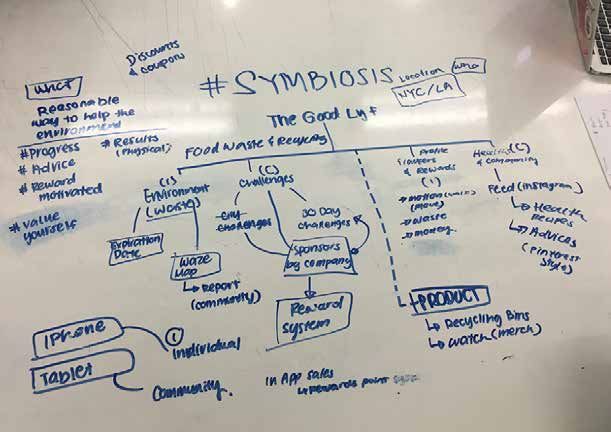 Discounts
& coupons
#SYMBIOSIS
Location
who
NYC/LA
what
Reasonable
way to help the
environment
#Progress
#Results
(Physical)
#Advice
#Reward
motivated
#value
yourself
The Good Lyf
Food Waste & Recycling
(I)
Environment
(waste)
Expiration
Date
waze
map
↳ Report
(community)
(C)
Challenges
challenges
30 Day
challenges
Sponsors
by company
Reward
system
Profile
& Rewards
(I)
(move)
→ waste
→ money
(C)
& community
Feed (Instagram)
↳ Health
recipes
↳ Advices
(Pinterest
style)
PRODUCT
↳ Recycling Bins
↳ watch (merch)
iPhone
I
Individual
Tablet
Community
In App sales
↳ Rewards point